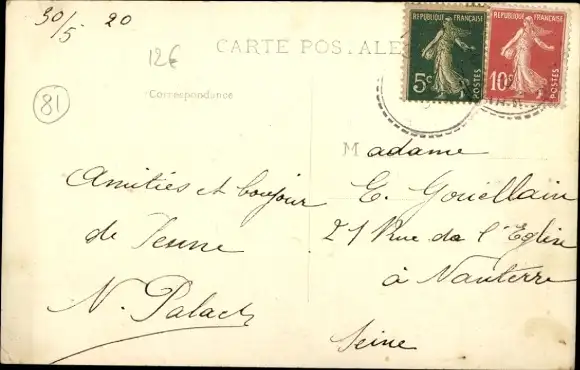 30/5 20
12€
CARTE POSTALE
RÉPUBLIQUE FRANÇAISE
5c
POSTES
RÉPUBLIQUE FRANÇAISE
10c
POSTES
81
Correspondance
Amitiés et bonjour
de
N. Palach
Madame
E. Gouellain
21 Rue de l'Eglise
à Nanterre
Seine